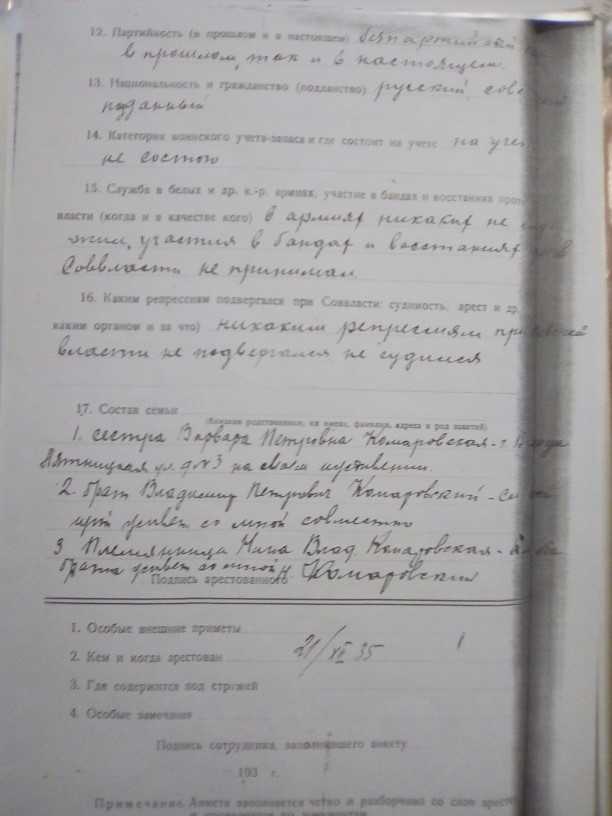 12. Партийность (в прошлом и в настоящем) беспартийный
в прошлом, так и в настоящем.
13. Национальность и гражданство (подданство) русский,
подданный
14. Категория воинского учета-запаса и где состоит на учете на
не состою
15. Служба в белых и др. к.-р. армиях, участие в бандах и восстаниях
власти (когда и в качестве кого) в армиях никаких не
участия в бандах и восстаниях
Соввласти не принимал
16. Каким репрессиям подвергался при Соввласти: судимость, арест и др.
каким органом и за что) никаким репрессиям при
власти не подвергался не судился
17. Состав семьи
(близкие родственники, их имена, фамилии, адреса и род занятий)
1. сестра Варвара Петровна Комаровская - г.
Пятницкая ул. д. № 3 на своем
2. брат Владимир Петрович Комаровский -
живет со мной совместно
3 Племянница Нина Влад. Комаровская -
брата живет со мной
Подпись арестованного Комаровский
1. Особые внешние приметы
2. Кем и когда арестован 21/XII 35
3. Где содержится под стражей
4. Особые замечания
Подпись сотрудника, заполнившего анкету
193 г.
Примечание. Анкета заполняется четко и разборчиво со слов